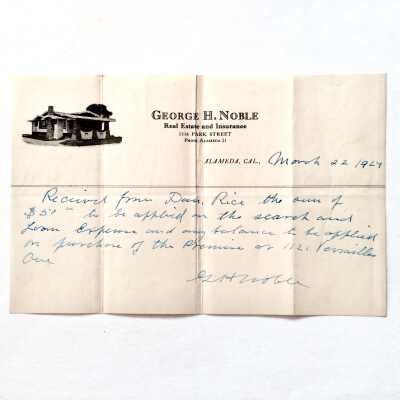 GEORGE H. NOBLE
Real Estate and Insurance
PARK STREET
PHONE ALAMEDA 21
ALAMEDA, CAL., March 22 192
Received from Dan. Rice the sum of
$50 to be applied on the search and
Loan Expense and any balance to be applied
on purchase of the Premise at 112 Versailles
Ave
G H Noble